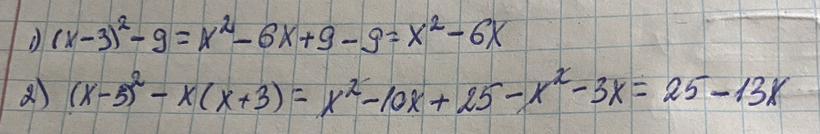 1) (x-3)² - 9 = x² - 6x + 9 - 9 = x² - 6x
2) (x-5)² - x(x+3) = x² - 10x + 25 - x² - 3x = 25 - 13x